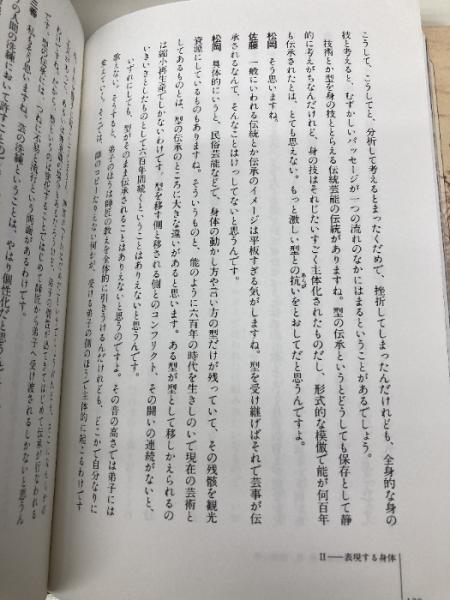 こうして、こうしてと、分析して考えるとまったくだめで、挫折してしまったんだけれども、全身的な身の
技と考えると、むずかしいパッセージが一つの流れのなかにはまるということがあるでしょう。
技術とか型を身の技ととらえる伝統芸能の伝統がありますね。型の伝承というとどうしても保存として静
的に考えがちなんだけれど、身の技はそれじたいすごく主体化されたものだし、形式的な模倣で能が何百年
も伝承されたとは、とても思えない。もっと激しい型との抗いをとおしてだと思うんですよ。
あらが
松岡 そう思いますね。
佐藤 一般にいわれる伝統とか伝承のイメージは平板すぎる気がしますね。型を受け継げばそれで芸事が伝
承されるなんて、そんなことはけっしてないと思うんです。
松岡 具体的にいうと、民俗芸能などで、身体の動かし方や言い方の型だけが残っていて、その残骸を観光
資源にしているものもありますね。そういうものと、能のように六百年の時代を生きしのいで現在の芸術と
してあるものとは、型の伝承のところに大きな違いがあると思います。ある型が型として移しかえられるの
は縮小再生産でしかないわけです。型を移す側と移される側とのコンフリクト、その闘いの連続がないと、
いきいきとしたものとして六百年間続くということはありえないと思うんです。
いずれにしても、型がそのまま伝承されることはありえないと思うのですよ。その音の高さでは弟子には
歌えない。そうすると、弟子のほうは師匠の教えを全体的に引きうけるんだけれども、どこかで自分なりに
変えていく。そこでは、師のコピーたりえない何かが、受ける弟子の側のほうで主体的に起こるわけです
II——表現する身体